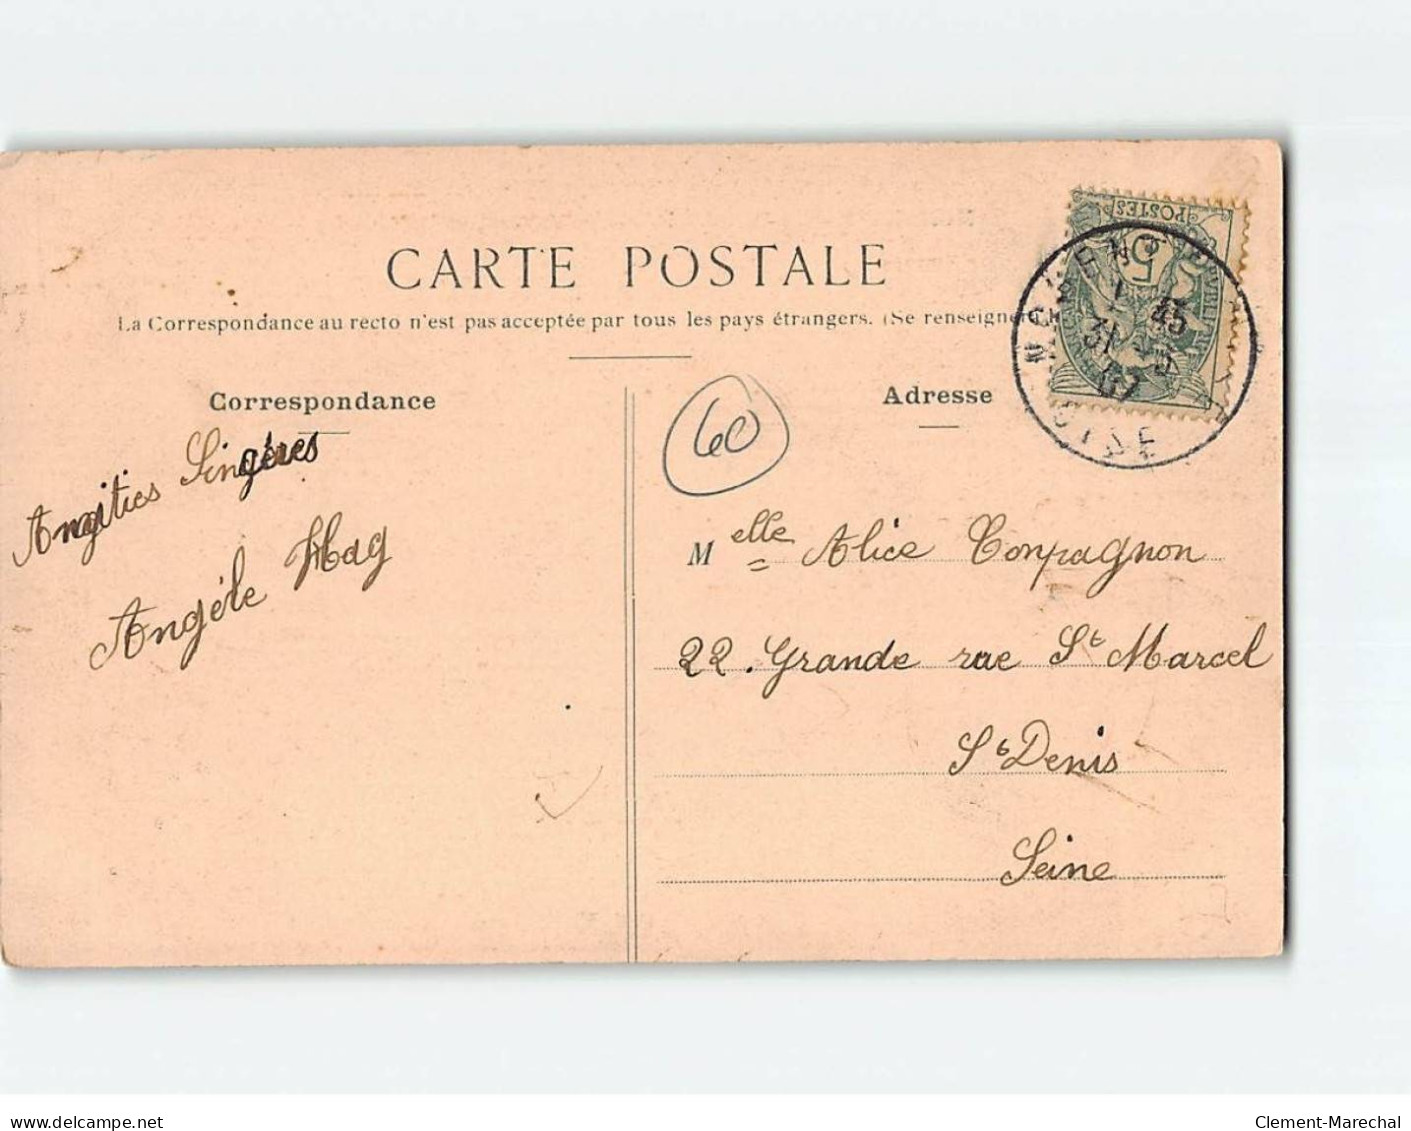 CARTE POSTALE
La Correspondance au recto n'est pas acceptée par tous les pays étrangers. (Se renseigner
Correspondance
Adresse
POSTES
5
1 45
31 - 5
07
OISE
60
Amitiés Sincères
Angèle Hag
Melle Alice Conpagnon
22. Grande rue St Marcel
St Denis
Seine
www.delcampe.net
Clement-Marechal